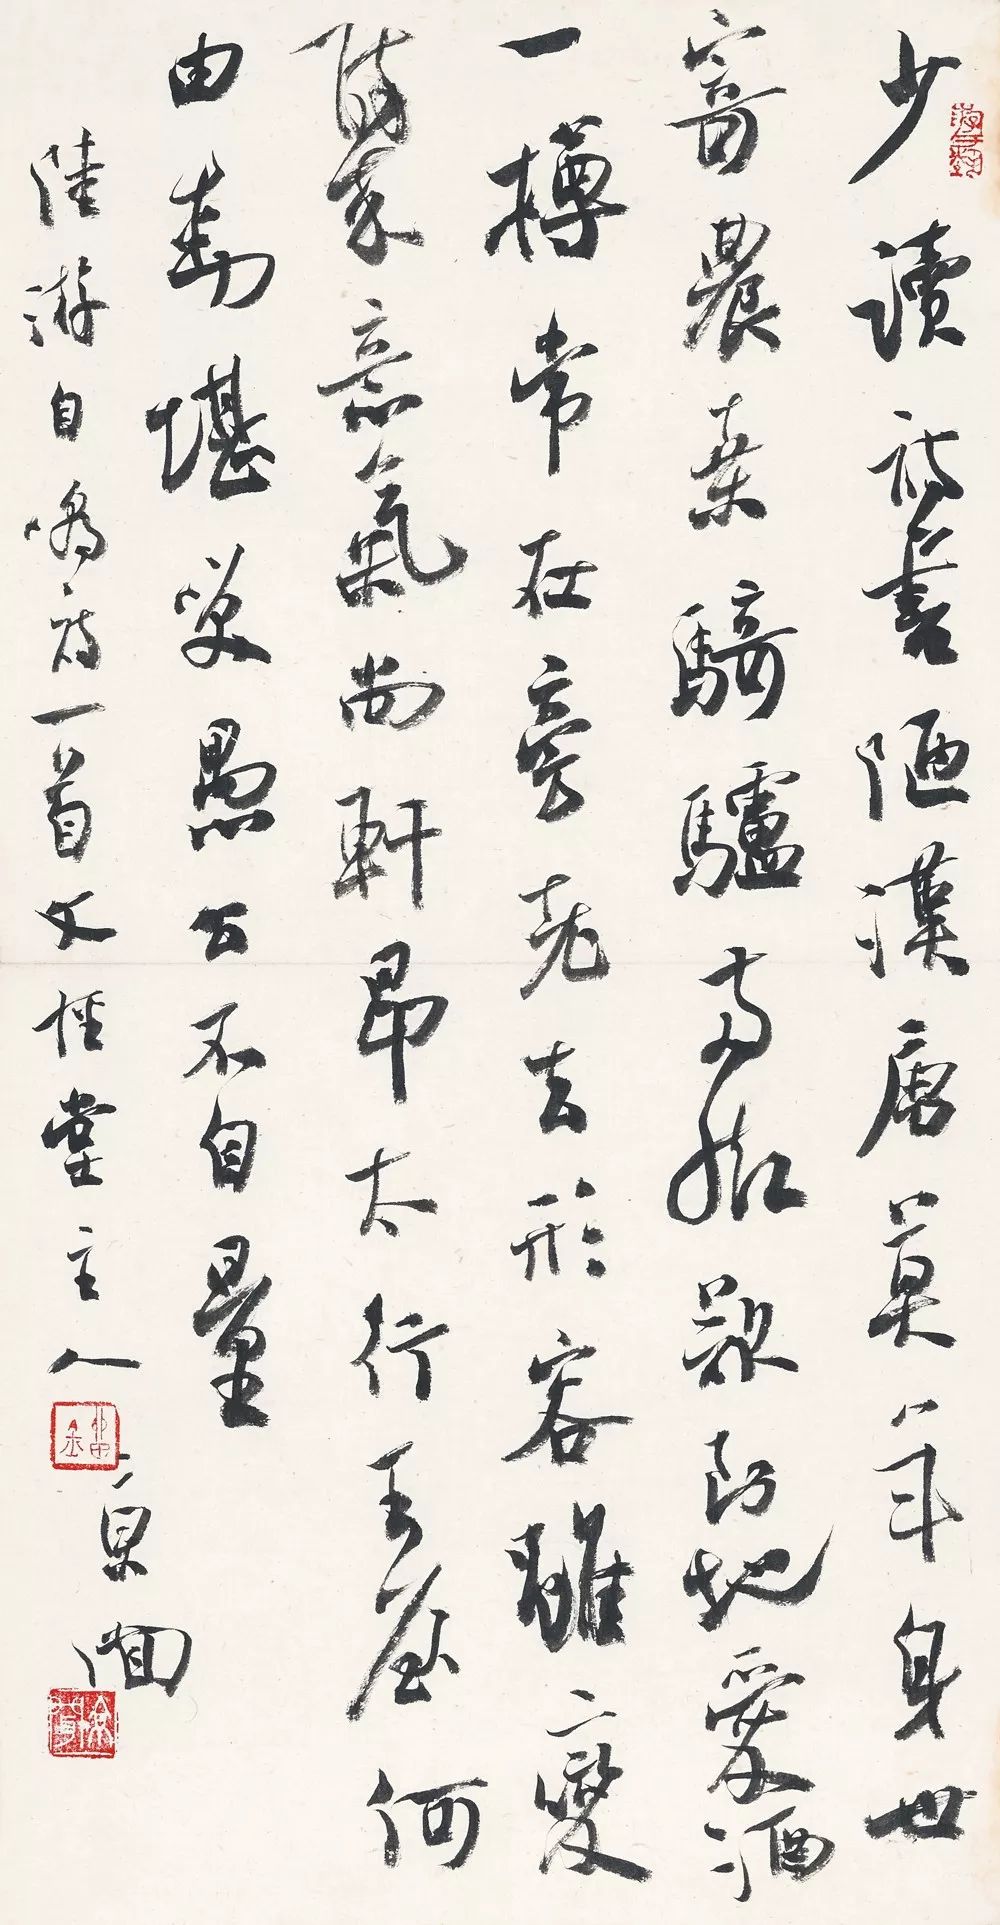 少讀詩書陋漢唐莫年身世
寄農桑騎驢兩腳欲到地愛酒
一樽常在旁老去形容雖變
來意氣尚軒昂太行王屋何
由動堪笑愚公不自量
陸游自嘲詩一首文惺堂主人